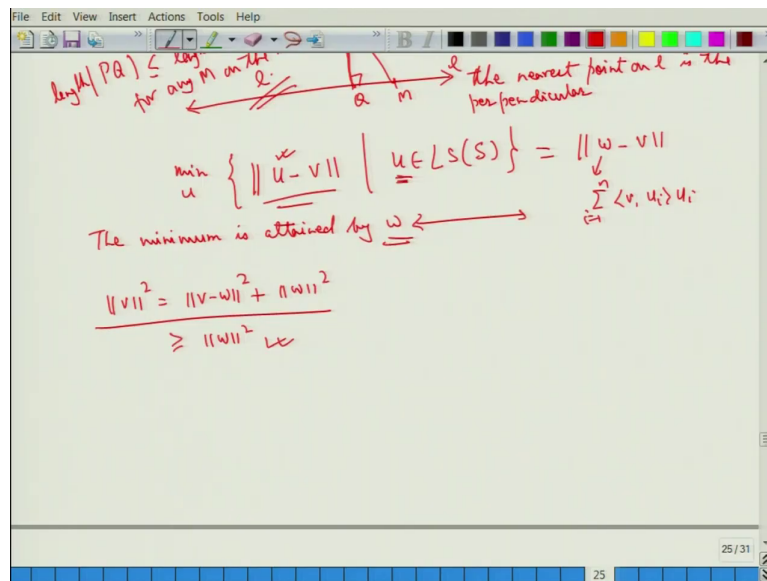 File Edit View Insert Actions Tools Help
length(PQ) ≤
for any M on the l.
Q M l
the nearest point on l is the
perpendicular
min u { ||u - v|| | u ∈ LS(S) } = ||w - v||
n Σ i=1 <v, ui> ui
The minimum is attained by w
||v||² = ||v-w||² + ||w||²
≥ ||w||²
25/31
25